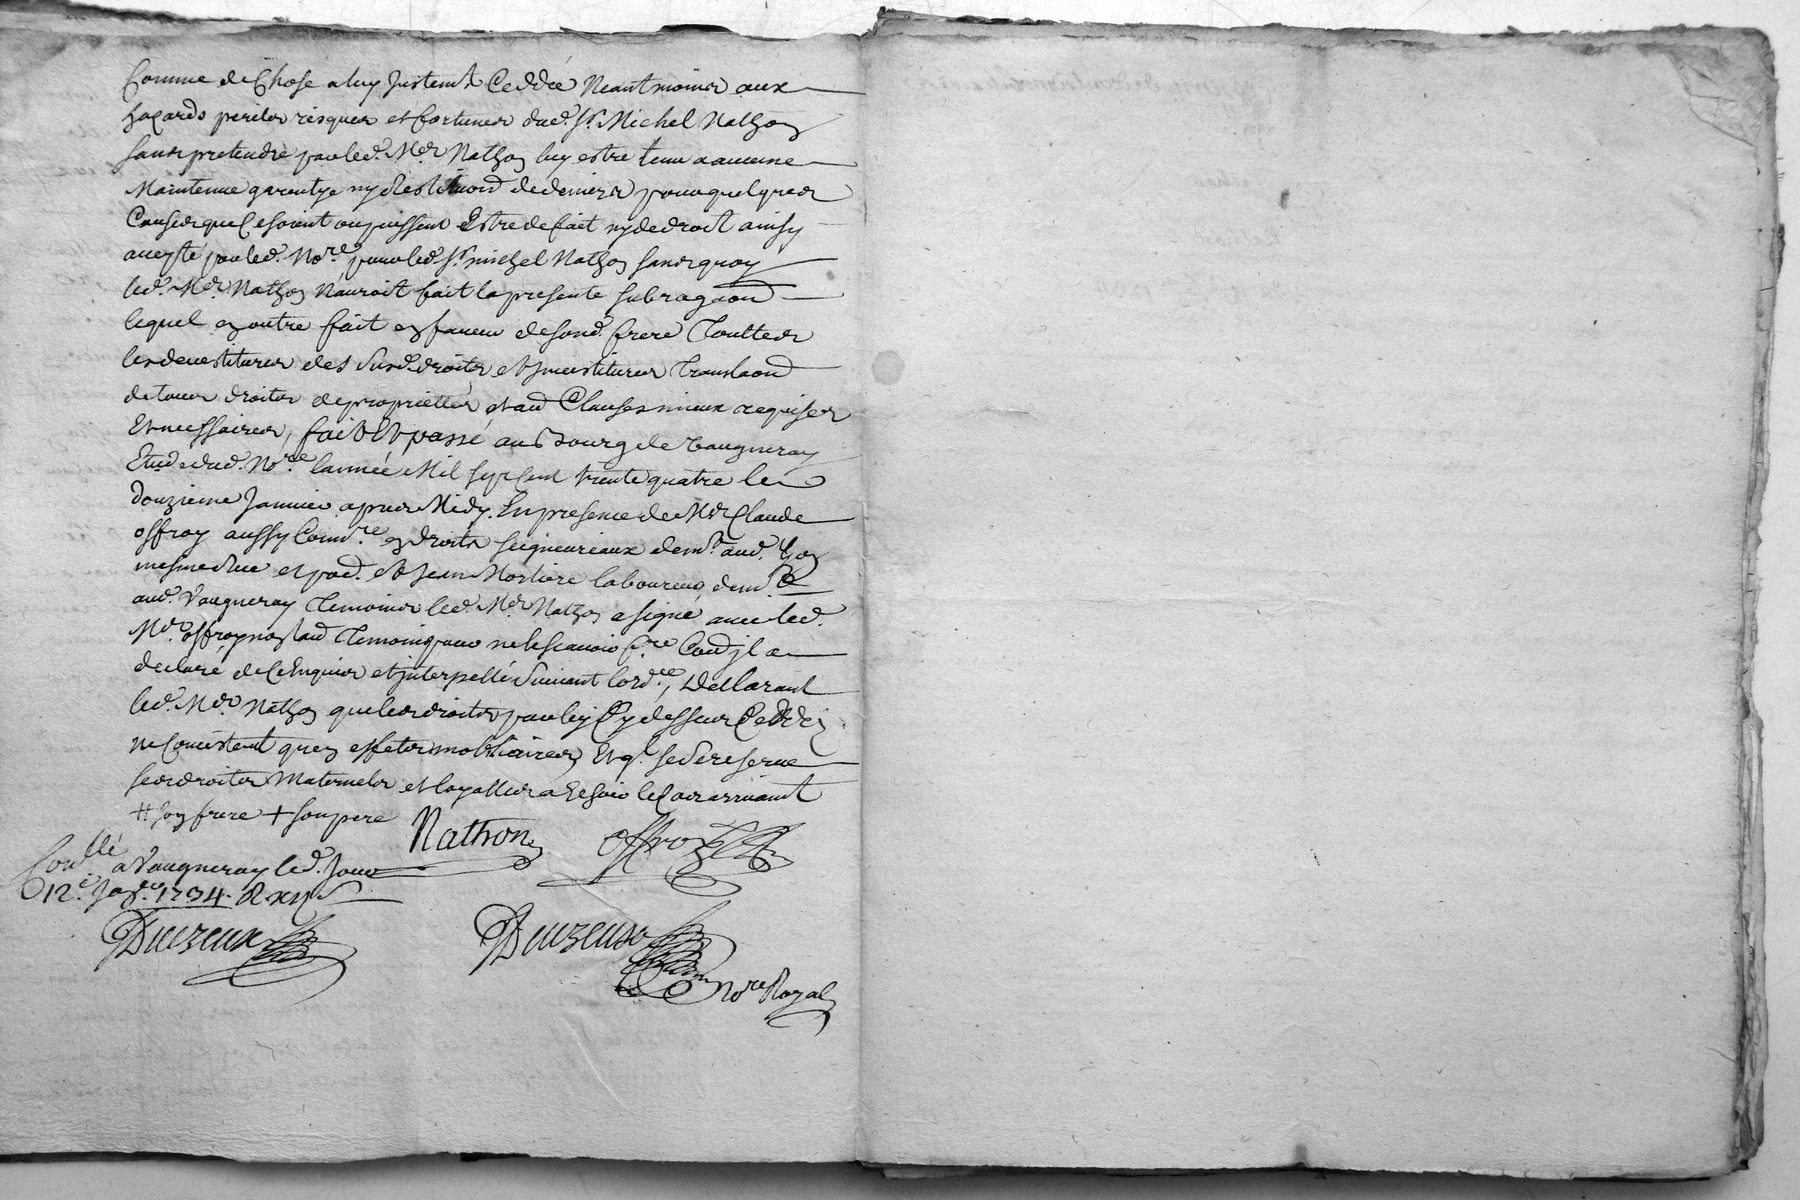 Comme de Chose a luy Justemt Ceddée Neantmoins aux
hazards perils risques et fortunes dud. Sr. Michel Nathon
sans pretendre par led. Mr. Nathon luy estre tenu a aucune
Maintenue garentye ny restitu͠on de deniers pour quelques
Causes que ce soient ou puissent Estre de fait ny de droit ainsy
accepté par led. Nore. pour led. Sr. Michel Nathon sans quoy
led. Mr. Nathon n'auroit fait la presente subroga͠on
lequel en outre fait en faveur de sond. frere Touttes
les devestitures des susd. droits et Investitures Transla͠on
de tous droits de proprietté et au͠ Clauses mieux requises
Et necessaires, fait Et passé au Bourg de Vaugneray
Etude dud. Nore. l'année Mil sept Cent trente quatre le
douzieme Janvier apres Midy. En presence de Mr Claude
offroy aussy Commre. en droits seigneuriaux demt. aud. Lyon
mesme Rue et par. et Jean Mortiere laboureur demt.
aud. Vaugneray Temoins led. Mr. Nathon a signé avec led.
Mr. offroy non laud Temoin pour ne le scavoir fre. Co͠e il a
declaré de Ce Enquis et interpellé Suivant l'ordce, Declarant
led. Mr. Nathon que les droits par luy Cy dessus Ceddés
ne Concistent qu'en effets mobiliaires Et ql. se Reserve
ses droits Maternels et loyalles a Echoir le Cas arrivant
++ son frere + son pere
Nathon offroy
Conllé a Vaugneray led. Jour
12e. Janer. 1734. R xii s
Duczeux Duczeux
Nore Royal